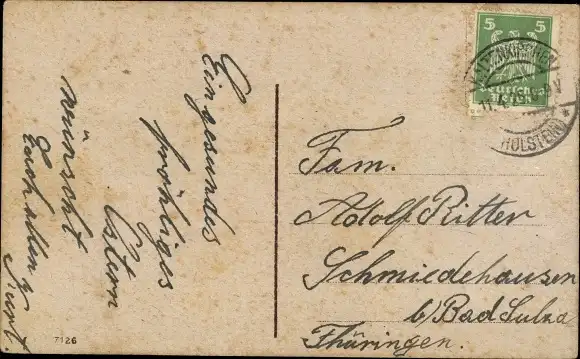 Ein gesundes
fröhliges
Ostern
wünscht
Euch allen
Kurt
7126
5 5
Deutsches
Reich
HOLSTEIN
Fam.
Adolf Ritter
Schmiedehausen
b/Bad Sulza
Thüringen.